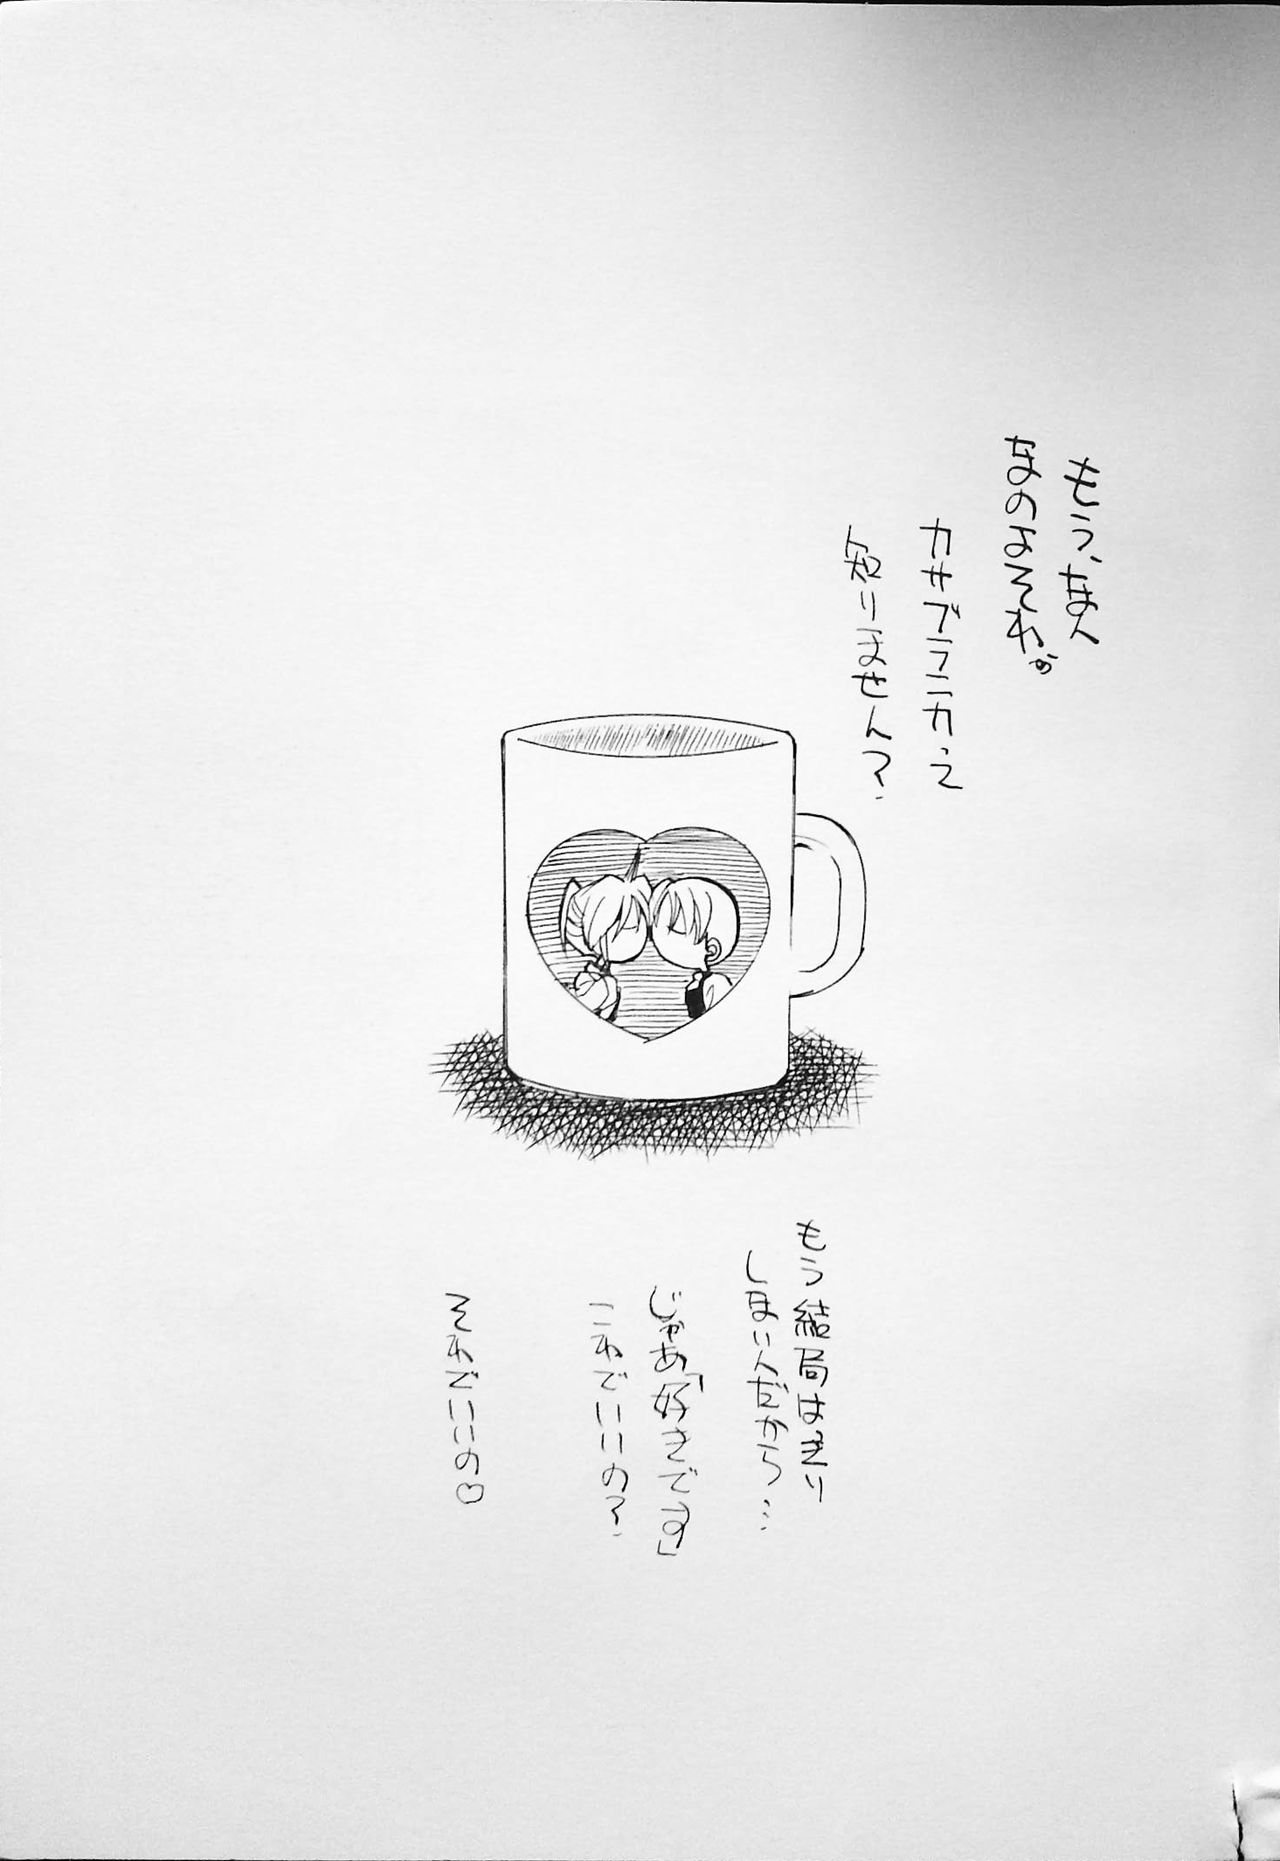 もう、なん
なのよそれゥ
カサブランカって
知りません?
もう結局はっきり
しないんだから…
じゃあ「好きです」
これでいいの?
それでいいの♡